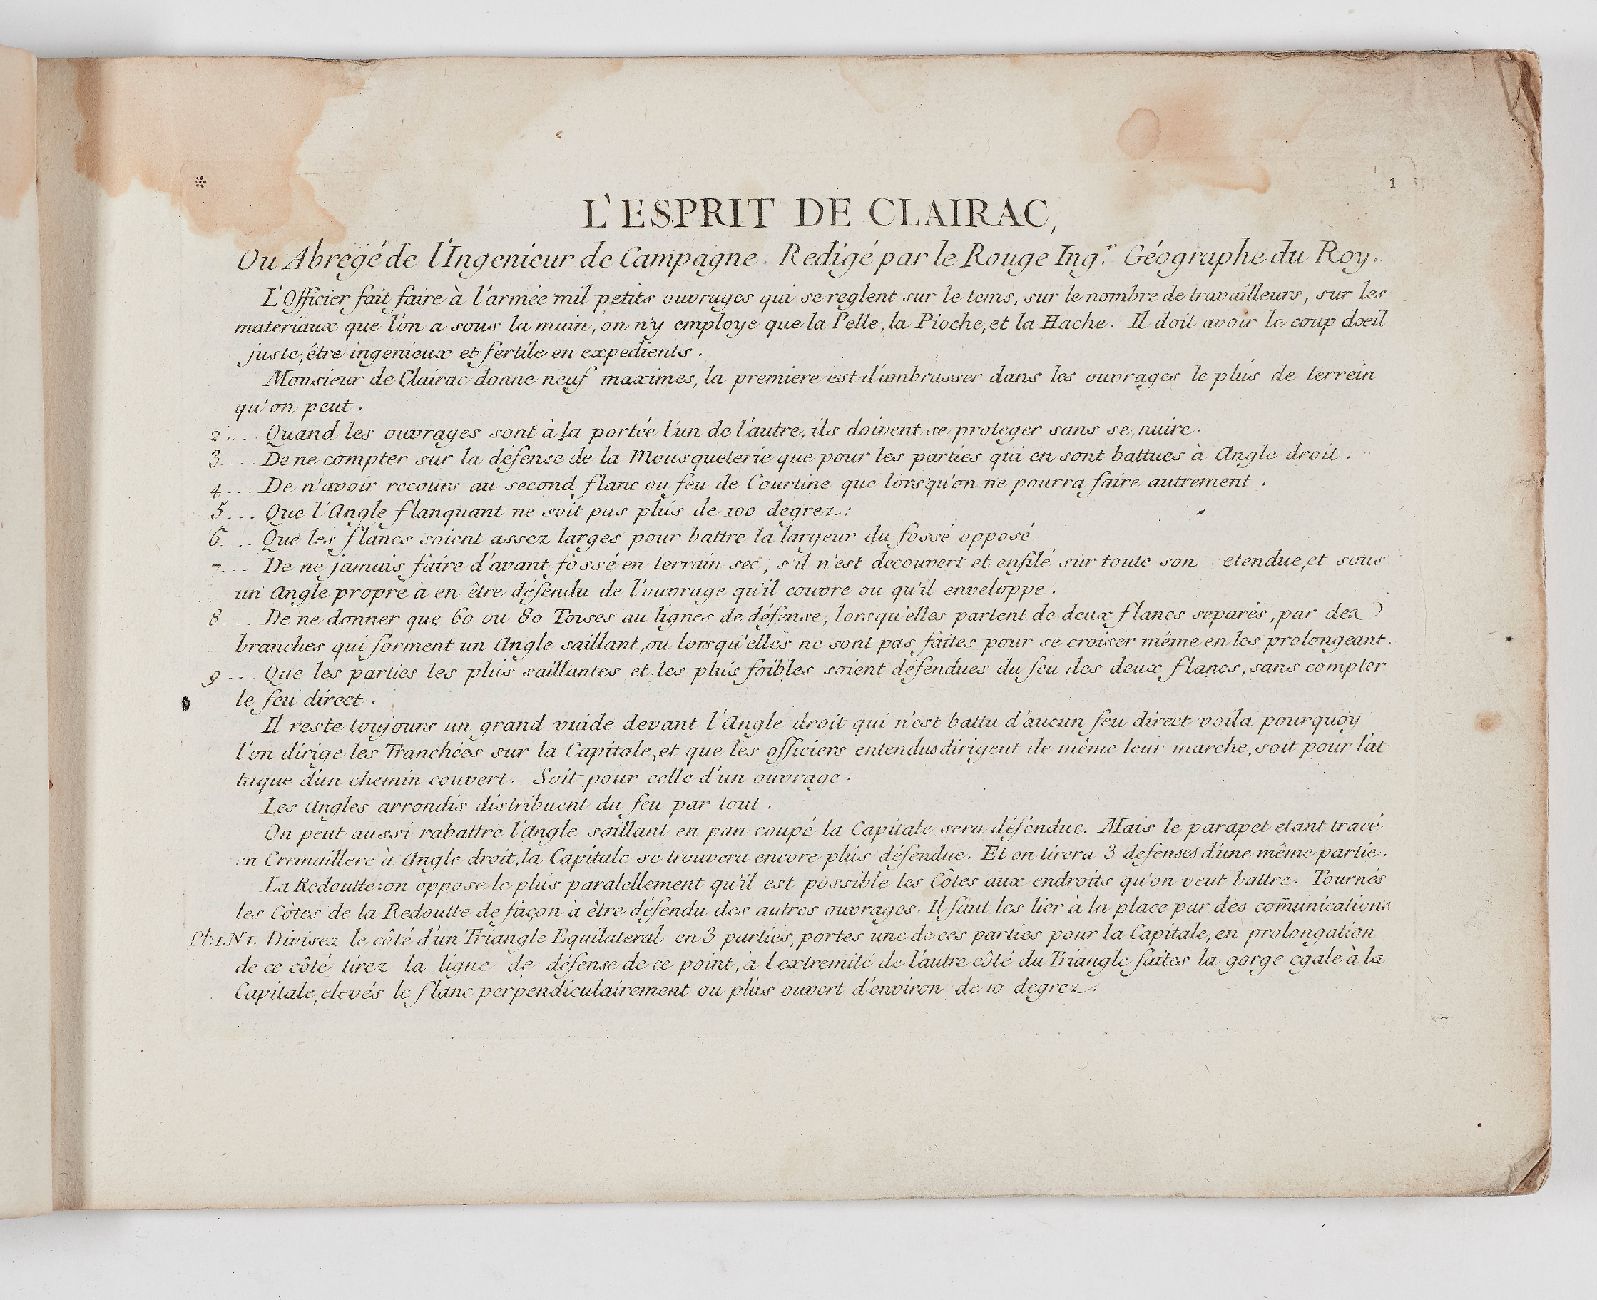 * 1
L'ESPRIT DE CLAIRAC,
Ou Abregé de l'Ingenieur de Campagne. Redigé par le Rouge Ing.r Géographe du Roy.
L'Officier fait faire à l'armée mil petits ouvrages qui se reglent sur le tems, sur le nombre de travailleurs, sur les
materiaux que l'on a sous la main, on n'y employe que la Pelle, la Pioche, et la Hache. Il doit avoir le coup dœil
juste, être ingenieux et fertile en expedients.
Monsieur de Clairac donne neuf maximes, la premiere est d'embrasser dans les ouvrages le plus de terrein
qu'on peut.
2... Quand les ouvrages sont à la portée l'un de l'autre, ils doivent se proteger sans se nuire.
3... De ne compter sur la défense de la Mousqueterie que pour les parties qui en sont battues à Angle droit.
4... De n'avoir recours au second flanc ou feu de Courtine que lorsqu'on ne pourra faire autrement.
5... Que l'Angle flanquant ne soit pas plus de 100 degrez.
6... Que les flancs soient assez larges pour battre la largeur du fossé opposé
7... De ne jamais faire d'avant fossé en terrain sec, s'il n'est decouvert et enfilé sur toute son etendue, et sous
un Angle propre à en être défendu de l'ouvrage qu'il couvre ou qu'il enveloppe.
8... De ne donner que 60 ou 80 Toises au lignes de défense, lorsqu'elles partent de deux flancs separés, par dez
branches qui forment un Angle saillant, ou lorsqu'elles ne sont pas faites pour se croiser même en les prolongeant.
9... Que les parties les plus saillantes et les plus foibles soient défendues du feu des deux flancs, sans compter
le feu direct.
Il reste toujours un grand vuide devant l'Angle droit qui n'est battu d'aucun feu direct voila pourquoy
l'on dirige les Tranchées sur la Capitale, et que les officiers entendus dirigent de même leur marche, soit pour l'at
taque d'un chemin couvert. Soit pour celle d'un ouvrage.
Les Angles arrondis distribuent du feu par tout.
On peut aussi rabattre l'Angle saillant en pan coupé la Capitale sera défendue. Mais le parapet etant tracé
en Cremaillere à Angle droit, la Capitale se trouvera encore plus défendue. Et on tirera 3 defenses d'une même partie.
La Redoutte: on oppose le plus paralellement qu'il est possible les Côtes aux endroits qu'on veut battre. Tournés
les Côtes de la Redoutte de façon à être défendu des autres ouvrages. Il faut les lier à la place par des com̃unications
Pl.1.N1. Divisez le côté d'un Triangle Equilateral en 3 parties, portes une de ces parties pour la Capitale, en prolongation
de ce côté tirez la ligne de défense de ce point, à l'extremité de l'autre côté du Triangle faites la gorge egale à la
Capitale, elevés le flanc perpendiculairement ou plus ouvert d'environ de 10 degrez.